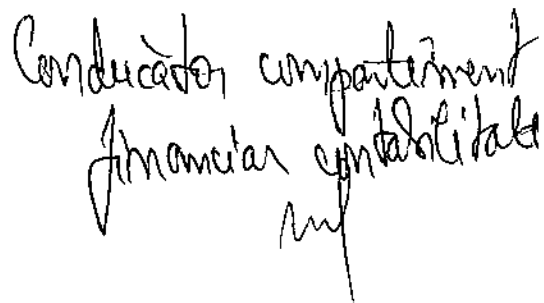 Conducător compartiment
financiar contabilitate